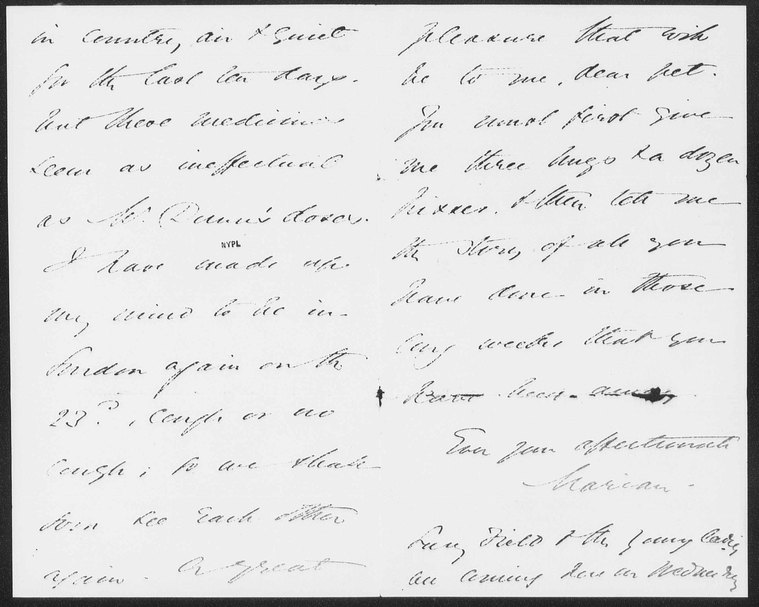 in country air & quiet
for the last ten days.
But these medicines
seem as ineffectual
as Mr. Dunn's doses.
NYPL
I have made up
my mind to be in
London again on the
23d, cough or no
cough; so we shall
soon see each other
again. A great
pleasure that will
be to me, dear pet.
You must first give
me three hugs & a dozen
kisses, & then tell me
the story of all you
have done in those
long weeks that you
have been away.
Ever your affectionate
Marian.
Field & the young ladies
are coming here on Wednesday